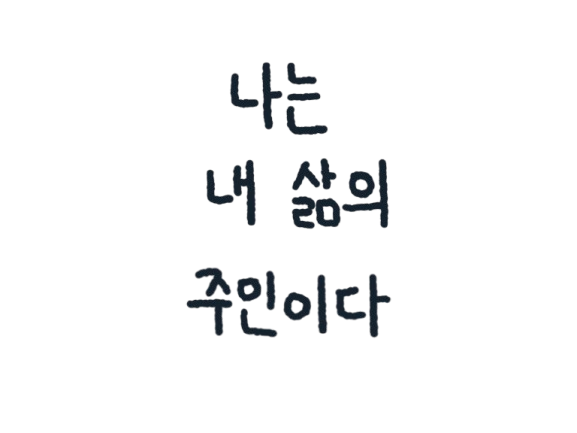 나는
내 삶의
주인이다